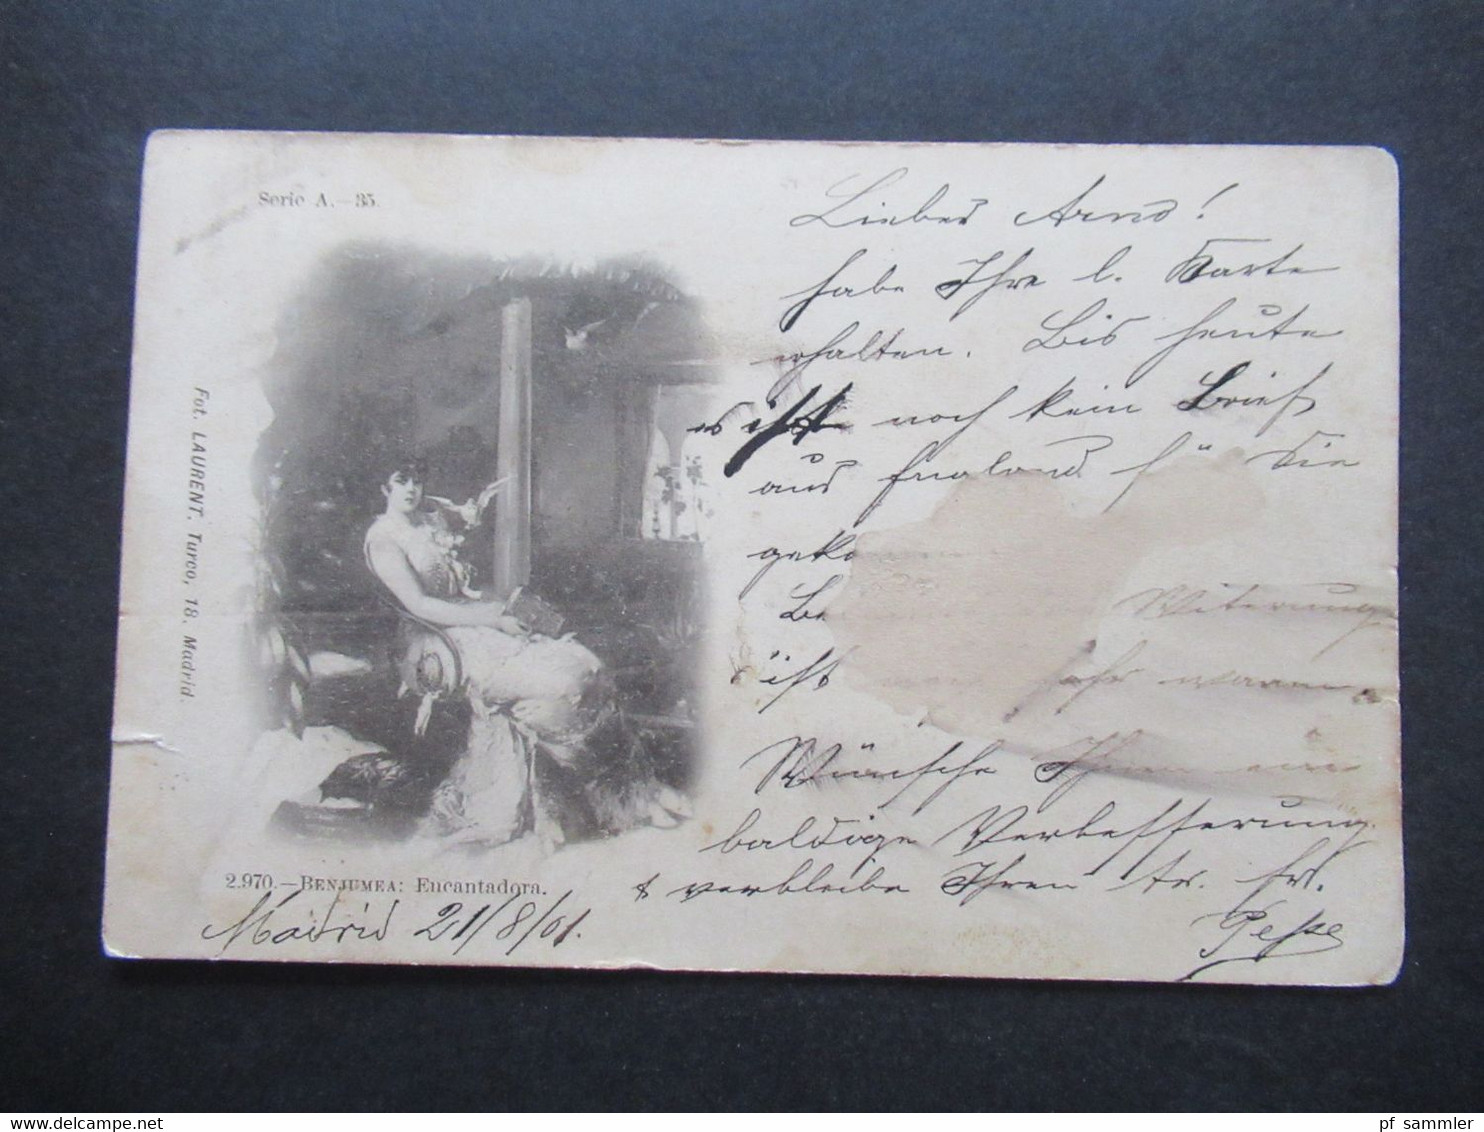 Serie A.—35.
Fot. LAURENT. Turco, 18. Madrid.
2.970.—BENJUMEA: Encantadora.
Madrid 21/8/01.
Lieber Arno!
habe Ihre l. Karte
erhalten. Bis heute
es ist noch kein Brief
aus England für Sie
Witterung
ist sehr warm
Wünsche Ihnen eine
baldige Verbesserung
& verbleibe Ihren tr. Fr.
Pepe
pf sammler